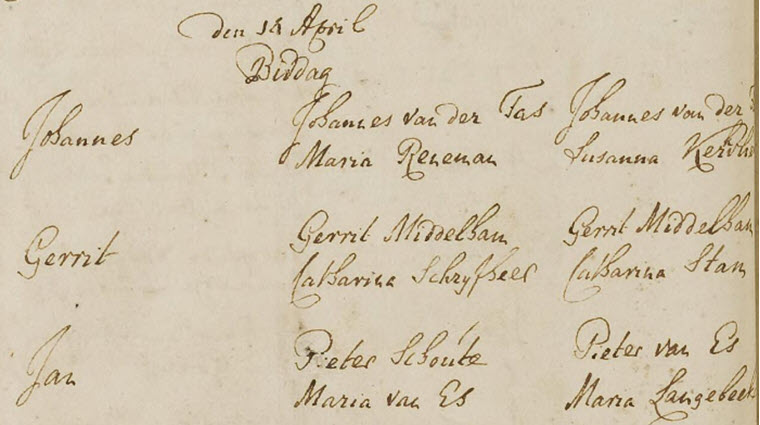 den 14 April
Biddag
Johannes
Johannes van der Tas
Maria Reneman
Johannes van der
Susanna
Gerrit
Gerrit Middelham
Catharina Schryfheer
Gerrit Middelham
Catharina Stam
Jan
Pieter Schoute
Maria van Es
Pieter van Es
Maria Langebeek